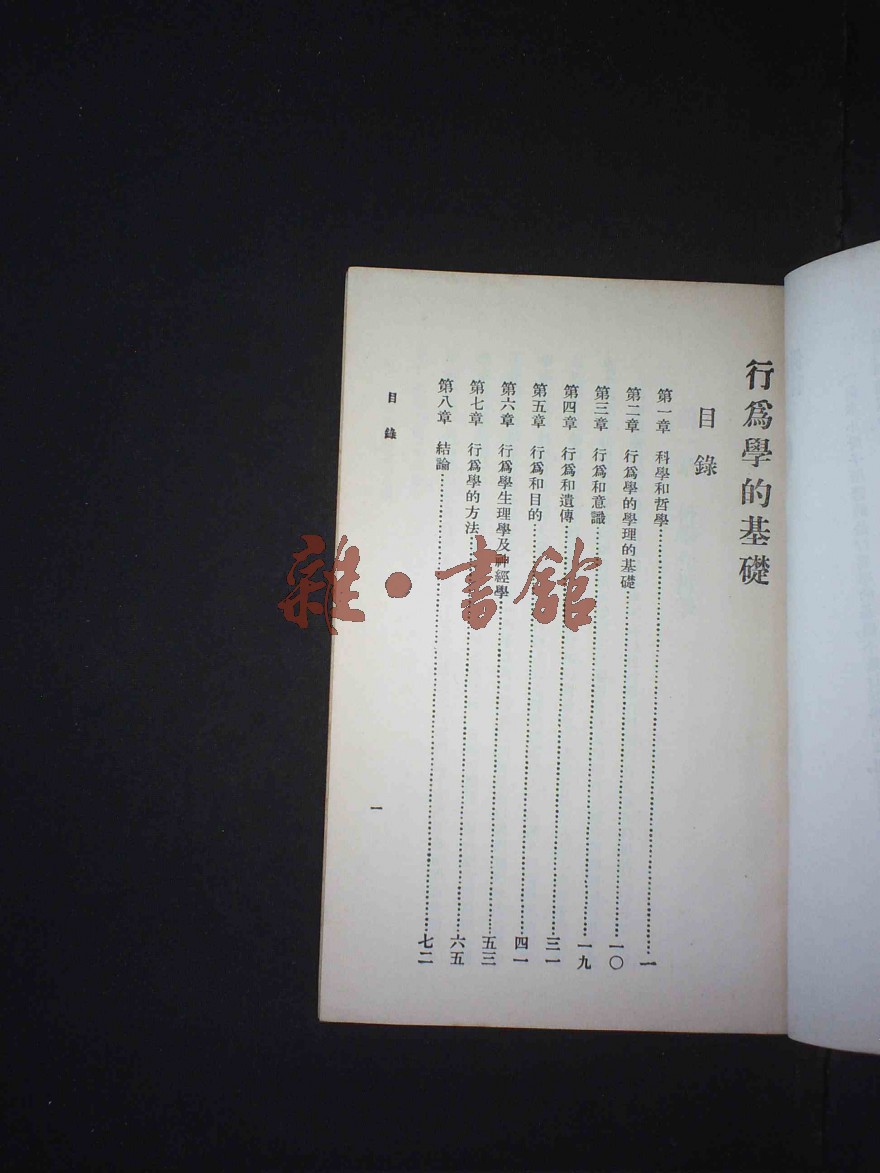 行爲學的基礎
目錄
第一章 科學和哲學……一
第二章 行爲學的學理的基礎……一〇
第三章 行爲和意識……一九
第四章 行爲和遺傳……三一
第五章 行爲和目的……四一
第六章 行爲學生理學及神經學……五三
第七章 行爲學的方法……六五
第八章 結論……七二
目錄
一
雜·書館